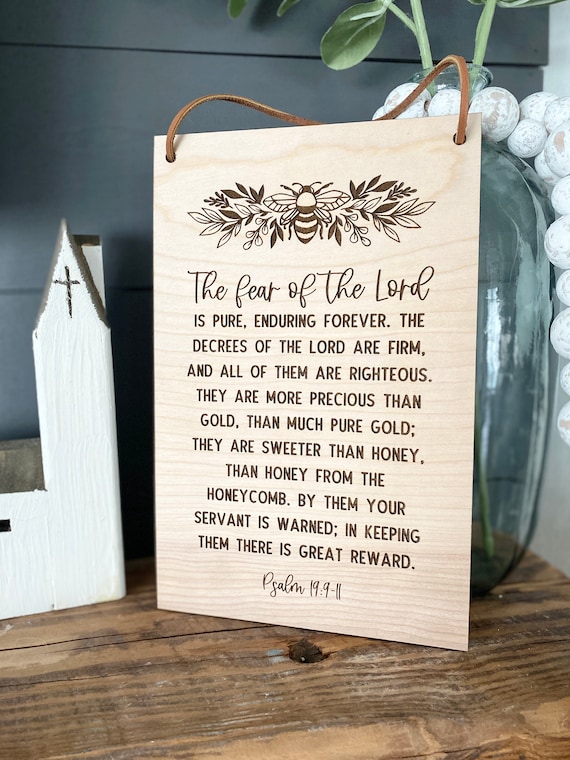 The fear of The Lord
IS PURE, ENDURING FOREVER. THE
DECREES OF THE LORD ARE FIRM,
AND ALL OF THEM ARE RIGHTEOUS.
THEY ARE MORE PRECIOUS THAN
GOLD, THAN MUCH PURE GOLD;
THEY ARE SWEETER THAN HONEY,
THAN HONEY FROM THE
HONEYCOMB. BY THEM YOUR
SERVANT IS WARNED; IN KEEPING
THEM THERE IS GREAT REWARD.
Psalm 19:9-11